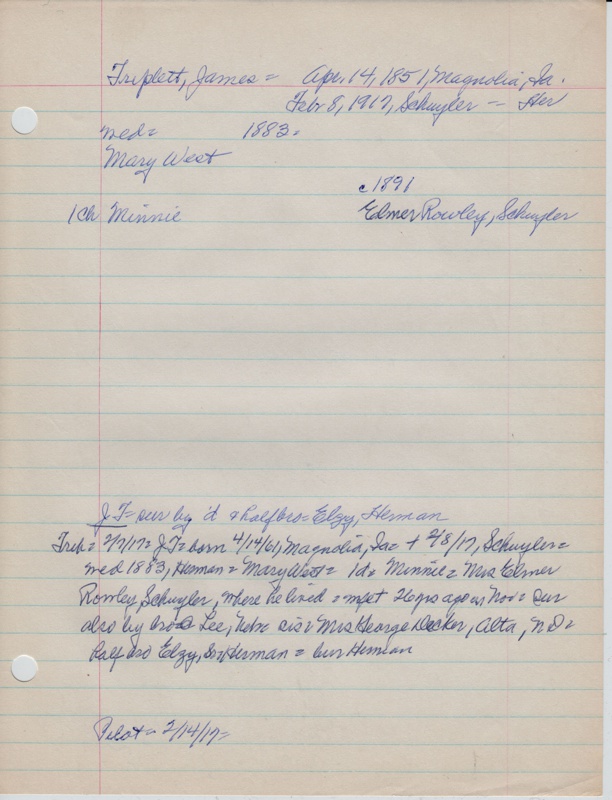 Triplett, James = Apr. 14, 1851, Magnolia, Ia.
Febr 8, 1917, Schuyler — Her
med = 1883 =
Mary West
c1891
1 ch Minnie Elmer Rowley, Schuyler
J T = sur by d & half bro = Elzy, Herman
Trib = 2/7/17 = J T = born 4/14/61, Magnolia, Ia = + 2/8/17, Schuyler =
med 1883, Herman = Mary West = 1 d = Minnie = Mrs Elmer
Rowley, Schuyler, where he lived = 26 yrs ago in Nov = sur
also by bro Lee, Nebr sis = Mrs George Decker, Alta, ND =
half bro Elzy, Herman = bur Herman
Pilot = 2/14/17 =